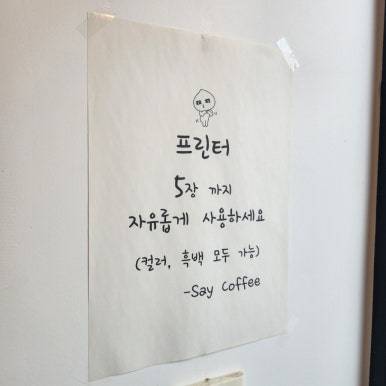 프린터
5장 까지
자유롭게 사용하세요
(컬러, 흑백 모두 가능)
-Say Coffee